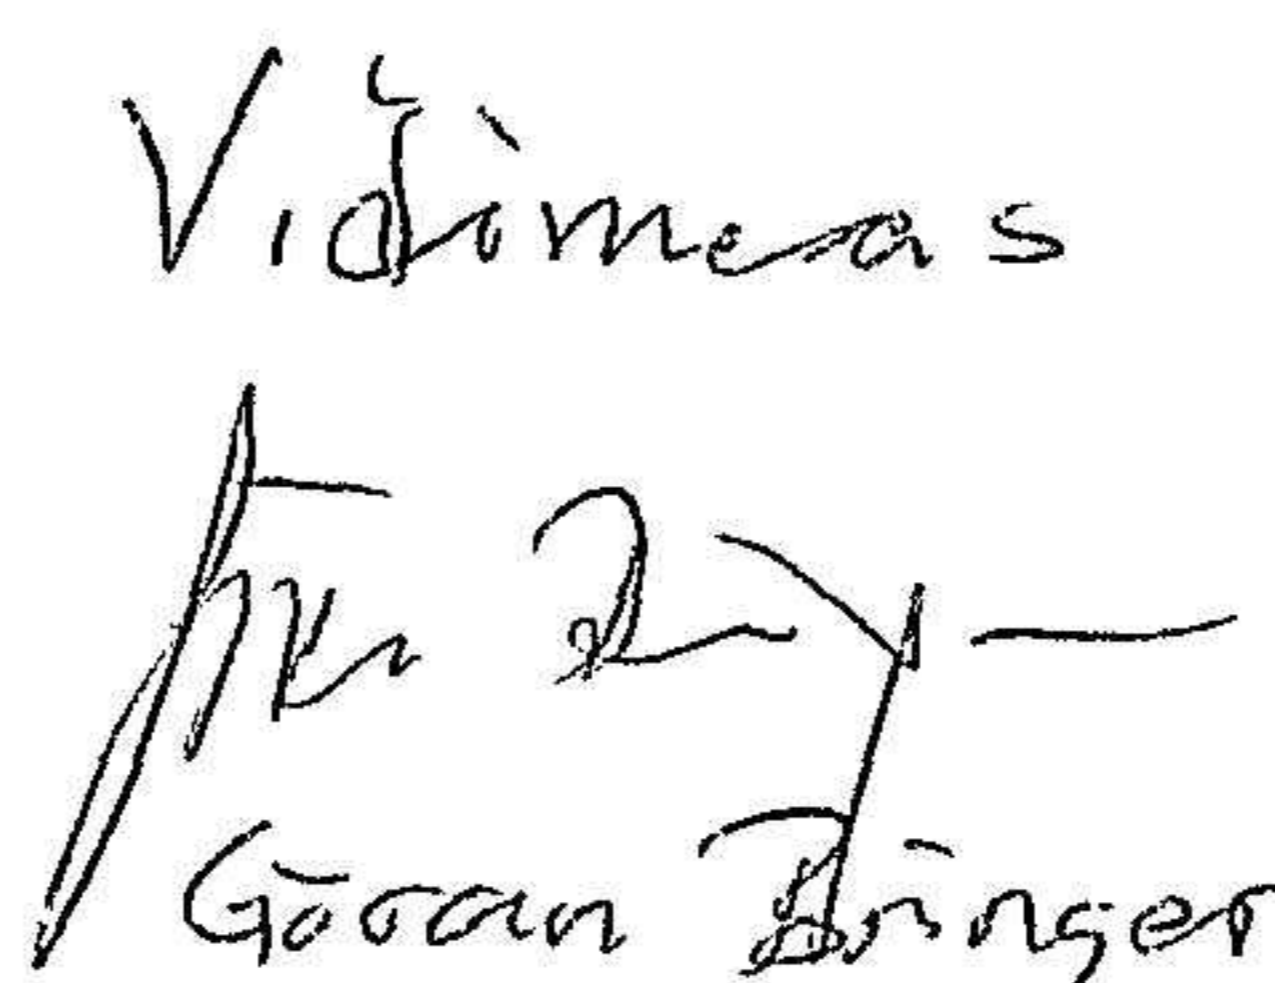 Vidimeas
Göran Bünger